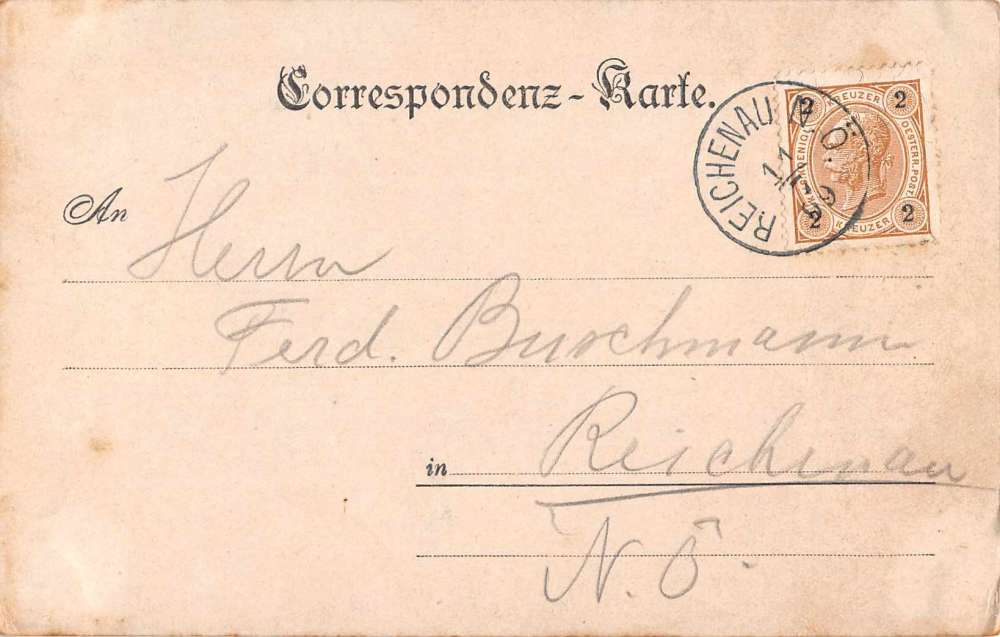 Correspondenz-Karte.
REICHENAU N.Ö.
2 KREUZER 2
OESTERR. POST.
2 KREUZER 2
An Herrn
Ferd. Buschmann
in Reichenau
N. Ö.